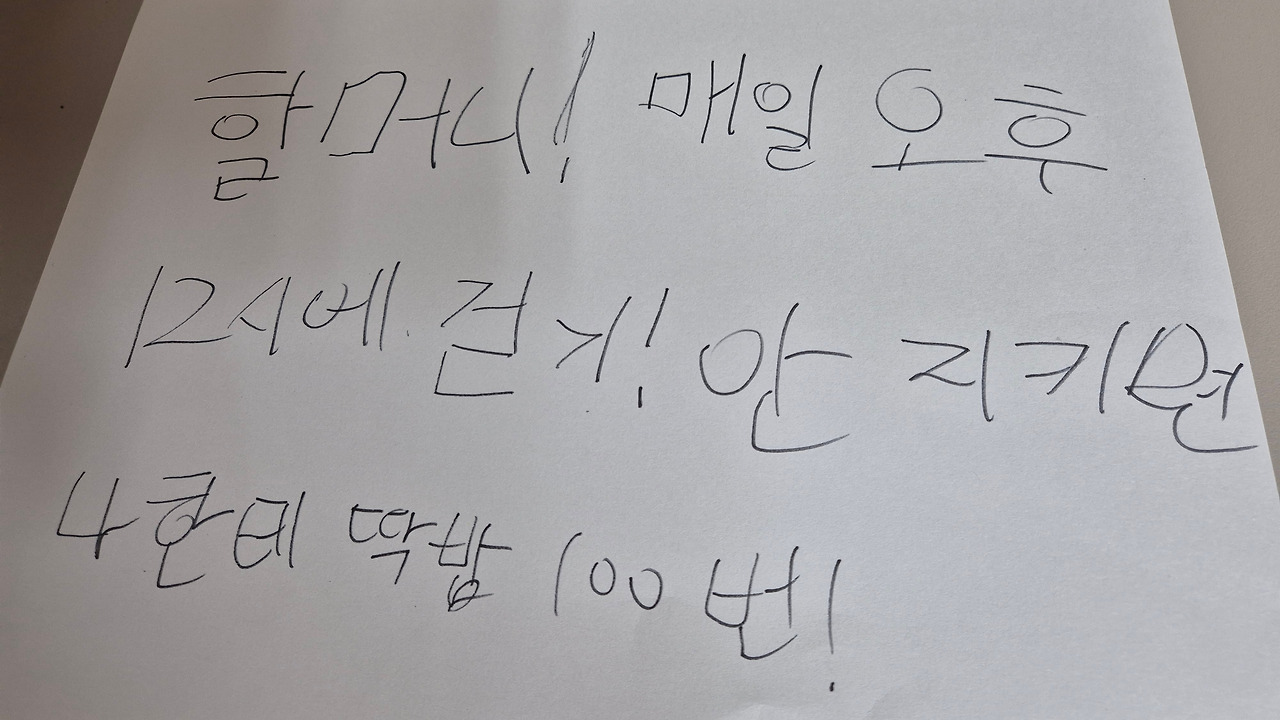 할머니! 매일 오후
12시에 걷기! 안 지키면
나한테 딱밤 100번!